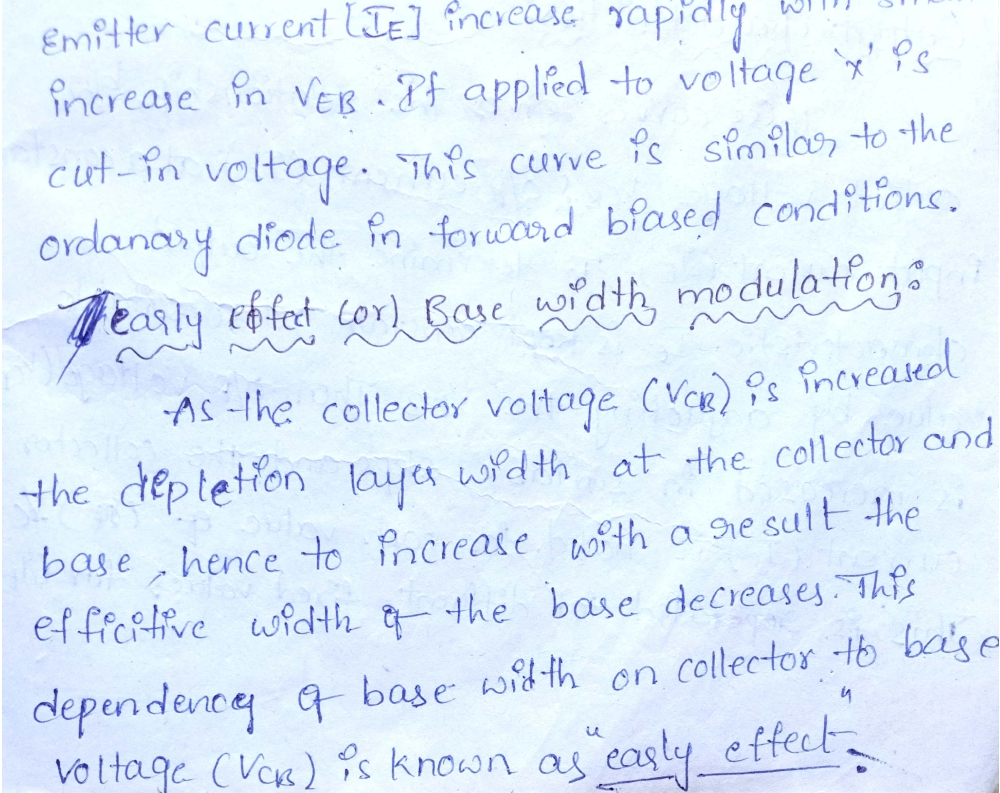 Emitter current [IE] increase rapidly with
increase in VEB. If applied to voltage 'x' is
cut-in voltage. This curve is similar to the
ordanary diode in forward biased conditions.
early effect (or) Base width modulation:
As the collector voltage (VCB) is increased
the depletion layer width at the collector and
base, hence to increase with a result the
efficitive width of the base decreases. This
dependency of base width on collector to base
voltage (VCB) is known as "early effect".